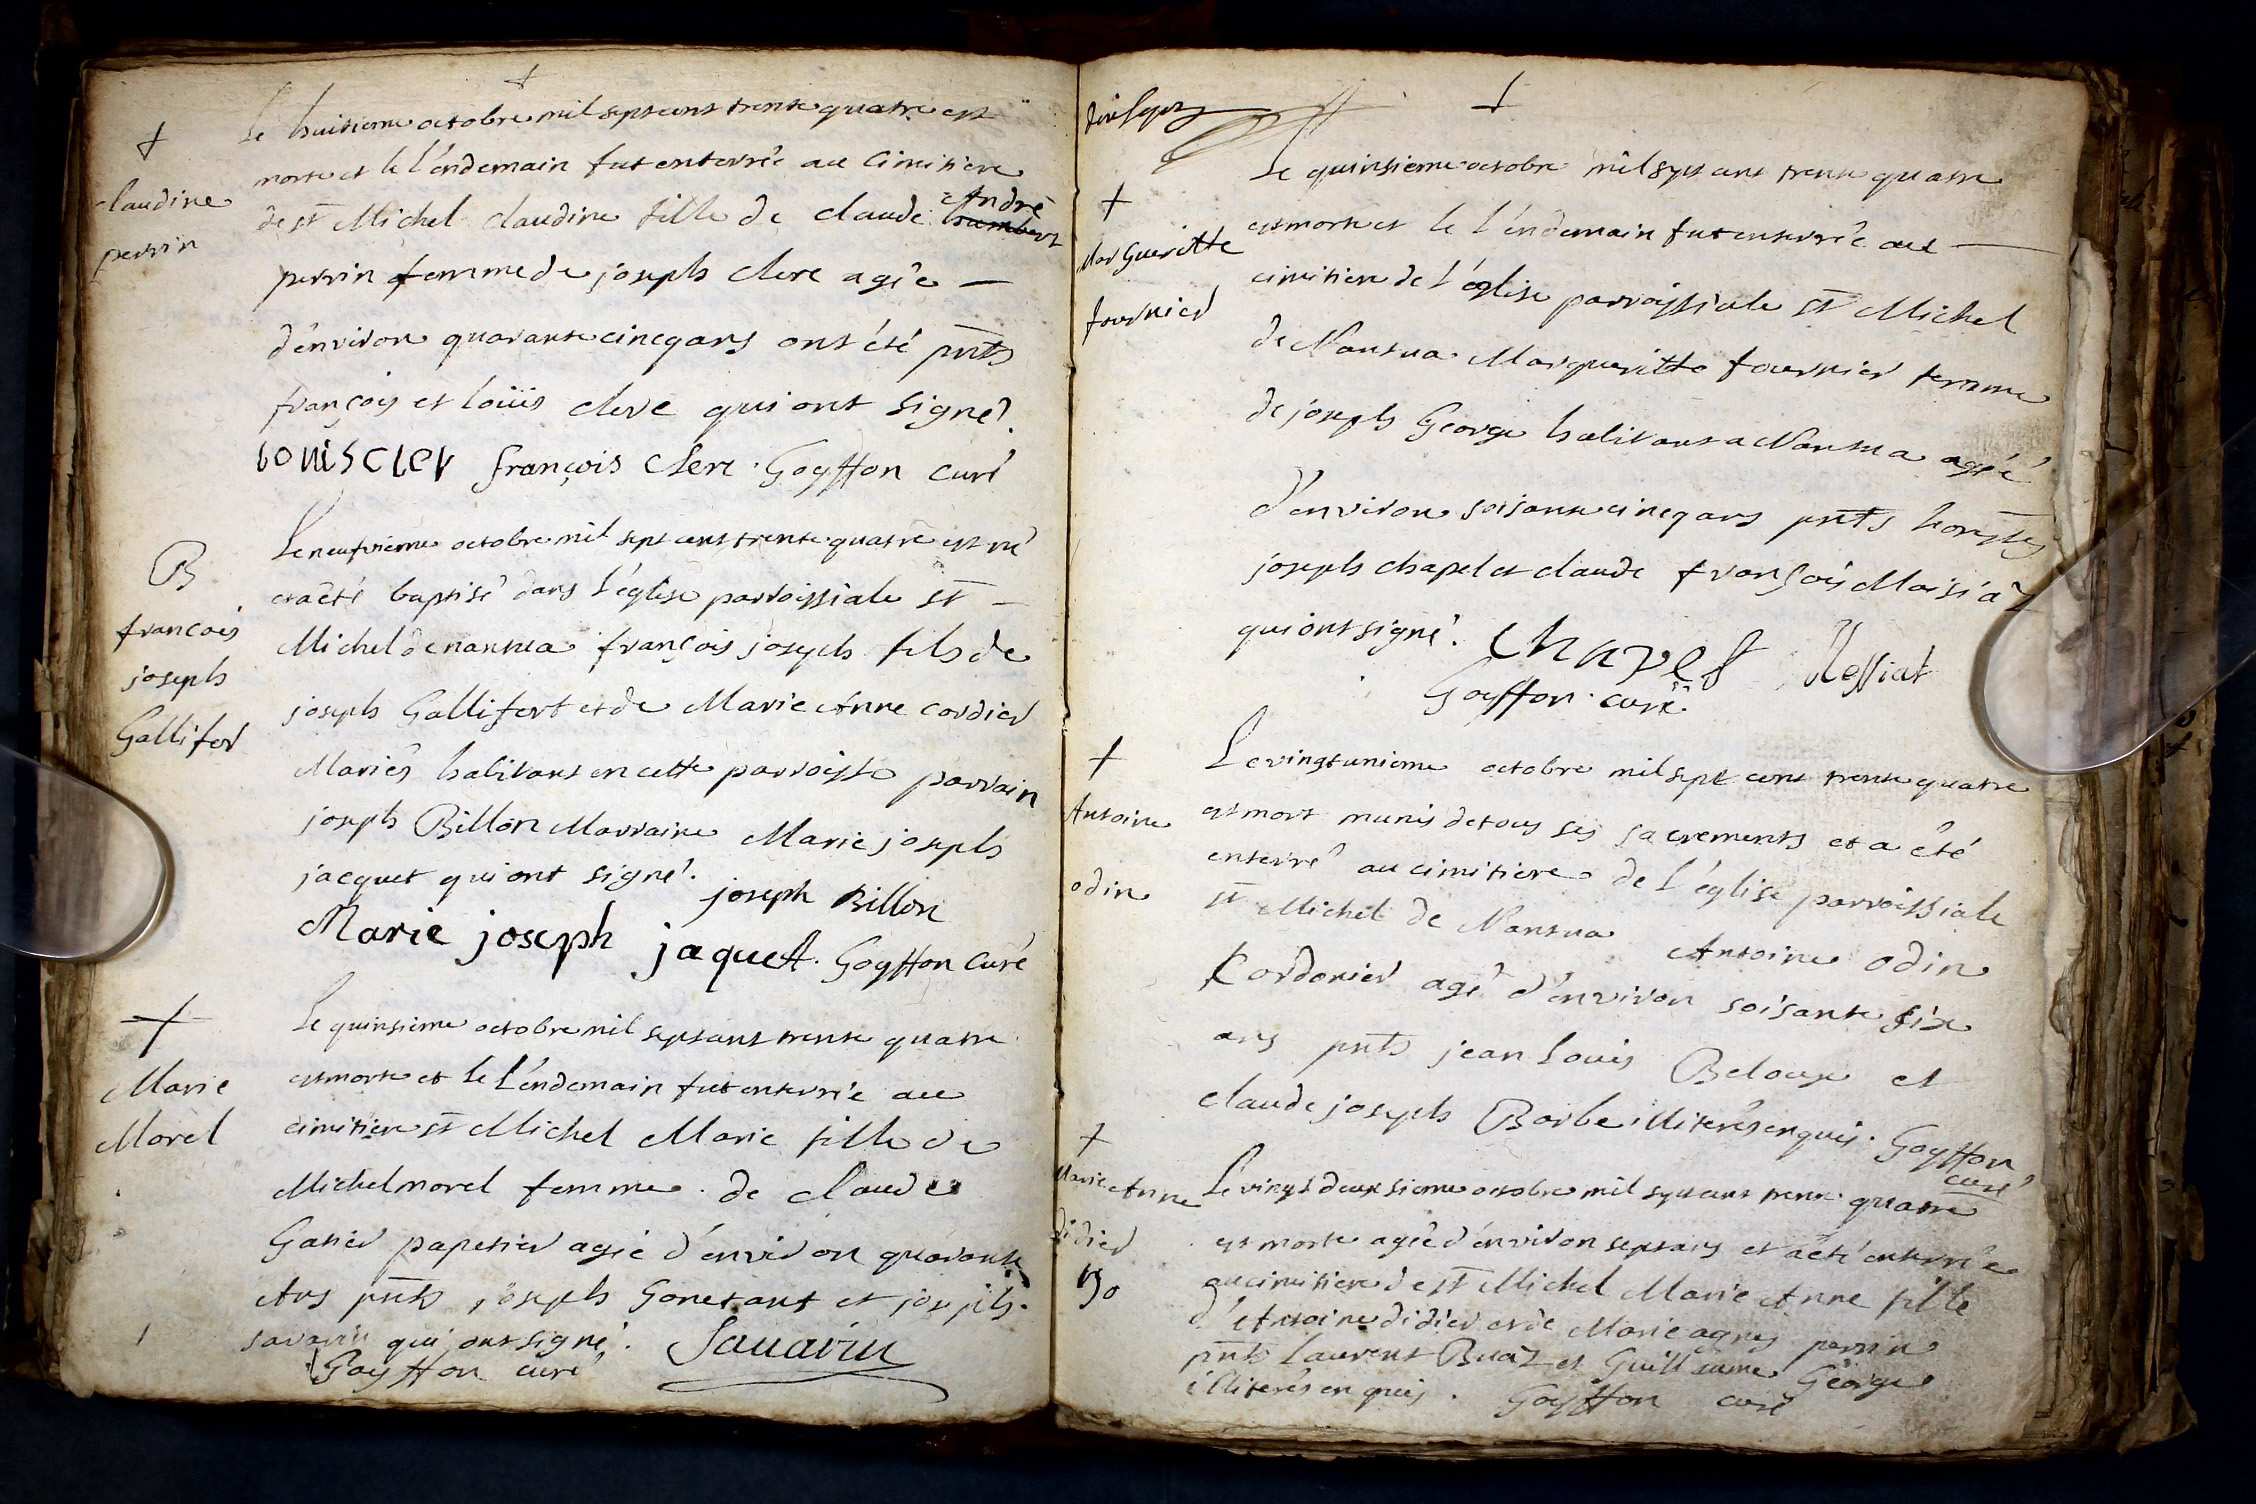 †
†
Claudine
perrin
Le huitieme octobre mil sept cent trente quatre est
morte et le l'endemain fut enterrée au Cimitiere
de st Michel claudine fille de claude humbert André
perrin femme de joseph clerc agée —
d'environ quarante cincq ans ont été pnts
françois et loüis clerc qui ont signé.
louis cler françois Clerc. Goyffon curé
B
françois
joseph
Gallifer
Le neufvieme octobre mil sept cent trente quatre est né
et a été baptisé dans l'église parroissiale st —
Michel de nantua françois joseph fils de
joseph Gallifert et de Marie Anne cordier
Mariés habitans en cette parroisse parrain
joseph Billon Marraine Marie joseph
jacquet qui ont signé.
joseph Billon
Marie joseph jaquet. Goyffon curé
†
Marie
Morel
Le quinsieme octobre mil sept cent trente quatre
est morte et le l'endemain fut enterrée au
cimitiere st Michel Marie fille de
Michel morel femme de claude
Garier papetier agée d'environ quarante
Ans pnts joseph Gonetant et joseph
savarin qui ont signé. Savarin
Goyffon curé
†
†
Margueritte
fournier
Le quinsieme octobre mil sept cent trente quatre
est morte et le l'endemain fut enterrée au —
cimitiere de l'église parroissiale st Michel
de Nantua Margueritte fournier femme
de joseph George habitant a Nantua agée
d'environ soisante cincq ans pnts honestes
joseph chapel et claude françois Maisiaz
qui ont signé. Chapel Messiat
Goyffon curé.
†
Antoine
odin
Le vingt unieme octobre mil sept cent trente quatre
est mort munis de tous ses sacrements et a été
enterré au cimitiere de l'église parroissiale
st Michel de Nantua Antoine odin
Cordonier agé d'environ soisante six
ans pnts jean louis Beloux et
claude joseph Barbe illiterés enquis. Goyffon
curé
†
Marie Anne
didier
Le vingt deuxsieme octobre mil sept cent trente quatre
est morte agée d'environ sept ans et a été enterrée
au cimitiere de st Michel Marie Anne fille
d'Antoine didier et de Marie agnes perrin
pnts laurent Buaz et Guilliaume George
illiterés enquis. Goyffon curé